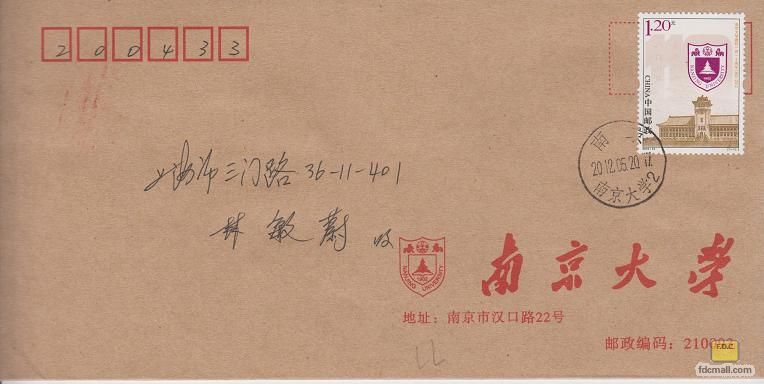 200433
1.20元
CHINA 中国邮政
NANJING UNIVERSITY
1902
上海市三门路36-11-401
林敏蔚 收
南
2012.05.20
南京大学2
NANJING UNIVERSITY
1902
南京大学
地址：南京市汉口路22号
邮政编码：210093
F.D.C.
fdcmall.com